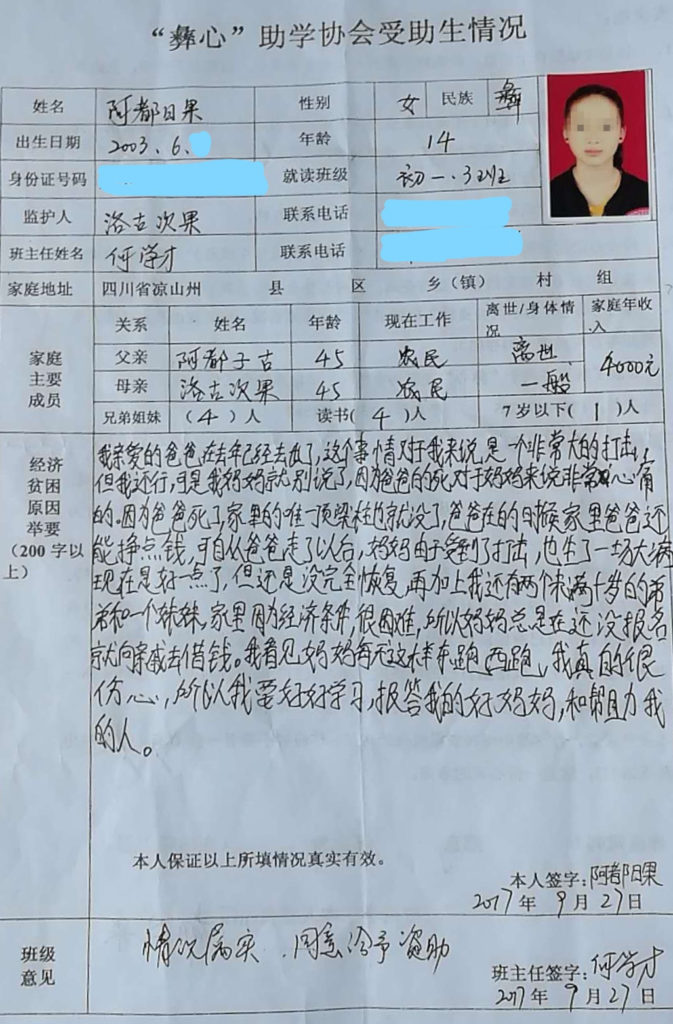 “彝心”助学协会受助生情况
姓名 阿都日果 性别 女 民族 彝
出生日期 2003.6. 年龄 14
身份证号码 就读班级 初一.3班
监护人 洛古次果 联系电话
班主任姓名 何学才 联系电话
家庭地址 四川省凉山州 县 区 乡(镇) 村 组
家庭主要成员 关系 姓名 年龄 现在工作 离世/身体情况 家庭年收入
父亲 阿都子古 45 农民 离世 4000元
母亲 洛古次果 45 农民 一般
兄弟姐妹 (4)人 读书(4)人 7岁以下(1)人
经济贫困原因举要(200字以上)
我亲爱的爸爸在去年已经去故了,这个事情对于我来说,是一个非常大的打击,
但我还行,可是我妈妈就别说了,因为爸爸的死对于妈妈来说非常心痛
的。因为爸爸死了,家里的唯一顶梁柱也就没了,爸爸在的日候家里爸爸还
能挣点钱,可自从爸爸走了以后,妈妈由于受到了打击,也生了一场大病
现在是好一点了,但还是没完全恢复,再加上我还有两个未满十岁的弟
弟和一个妹妹,家里因为经济条件,很困难,所以妈妈总是在还没报名
就向亲戚去借钱。我看见妈妈每天这样东跑西跑,我真的很
伤心,所以我要好好学习,报答我的好妈妈,和帮助力我
的人。
本人保证以上所填情况真实有效。
本人签字:阿都日果
2017年9月27日
班级意见 情况属实,同意给予资助
班主任签字:何学才
2017年9月27日